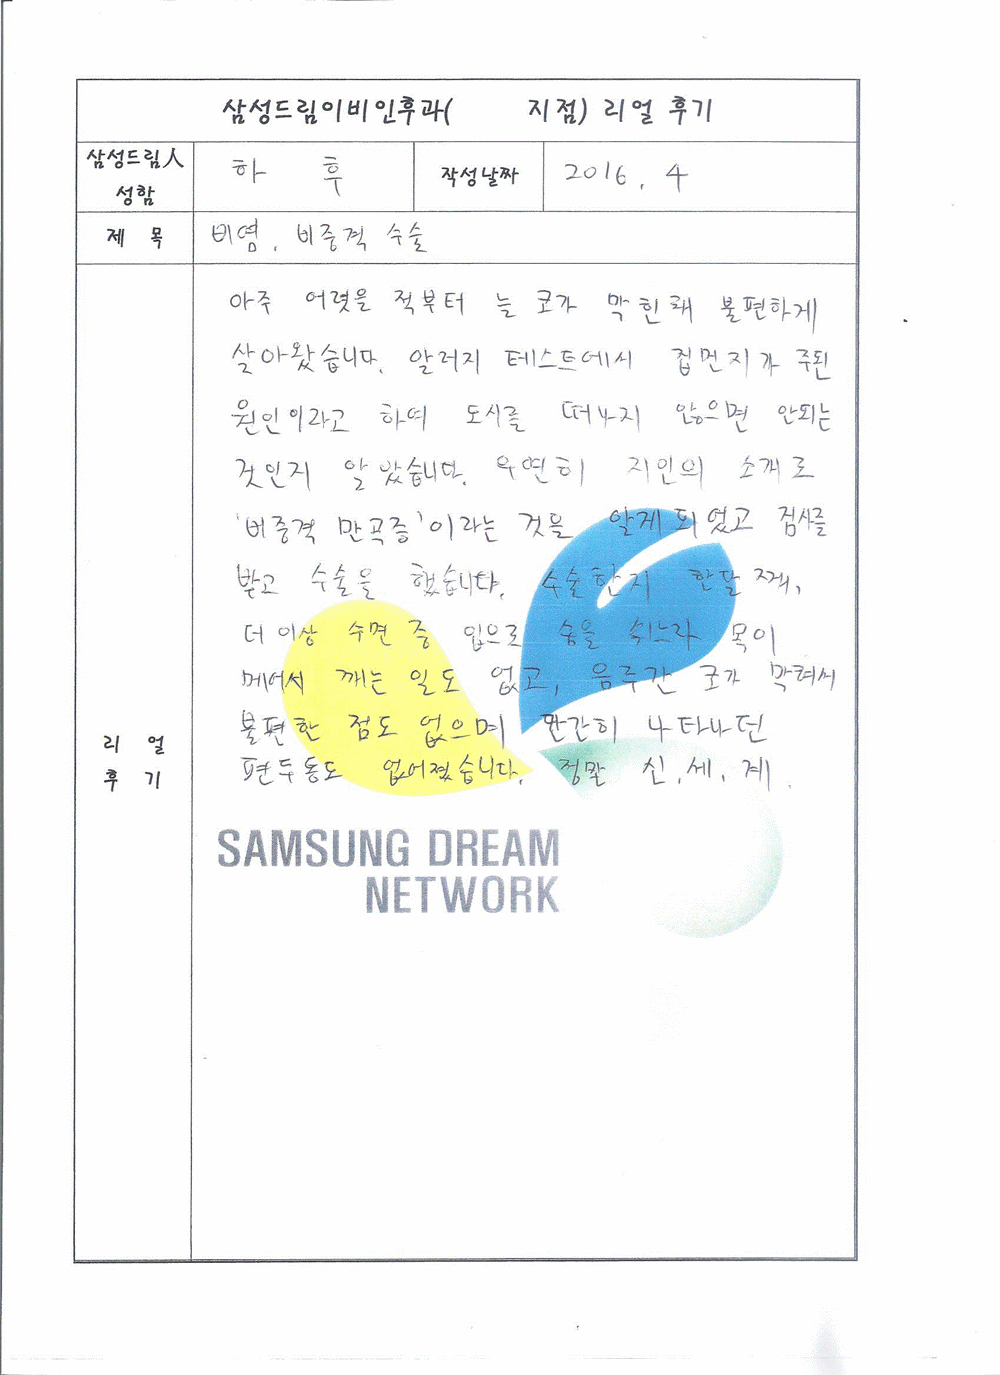 삼성드림이비인후과( 지점) 리얼 후기
삼성드림人 성함
하 후
작성날짜
2016. 4
제 목
비염, 비중격 수술
리 얼 후 기
아주 어렸을 적부터 늘 코가 막힌채 불편하게
살아왔습니다. 알러지 테스트에서 집먼지가 주된
원인이라고 하여 도시를 떠나지 않으면 안되는
것인지 알았습니다. 우연히 지인의 소개로
'비중격 만곡증'이라는 것을 알게 되었고 검사를
받고 수술을 했습니다. 수술한지 한달 째,
더 이상 수면 중 입으로 숨을 쉬느라 목이
메어서 깨는 일도 없고, 음주간 코가 막혀서
불편한 점도 없으며 만간히 나타나던
편두통도 없어졌습니다. 정말 신.세.계.
SAMSUNG DREAM
NETWORK